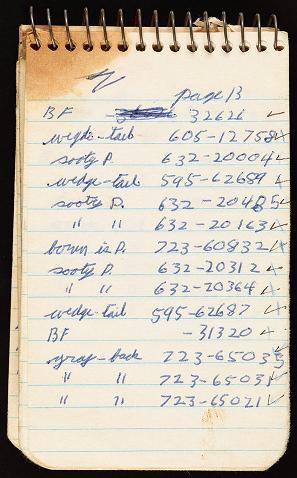 page 13
BF 32626 ✓
wedge-tail 605-12758 ✓
sooty P. 632-20004 ✓
wedge-tail 595-62689 ✓
sooty P. 632-20485 ✓
" " 632-20163 ✓
bonin is P. 723-60832 ✓
sooty P. 632-20312 ✓
" " 632-20364 ✓
wedge-tail 595-62687 ✓
BF -31320 ✓
gray-back 723-65035 ✓
" " 723-65031 ✓
" " 723-65021 ✓